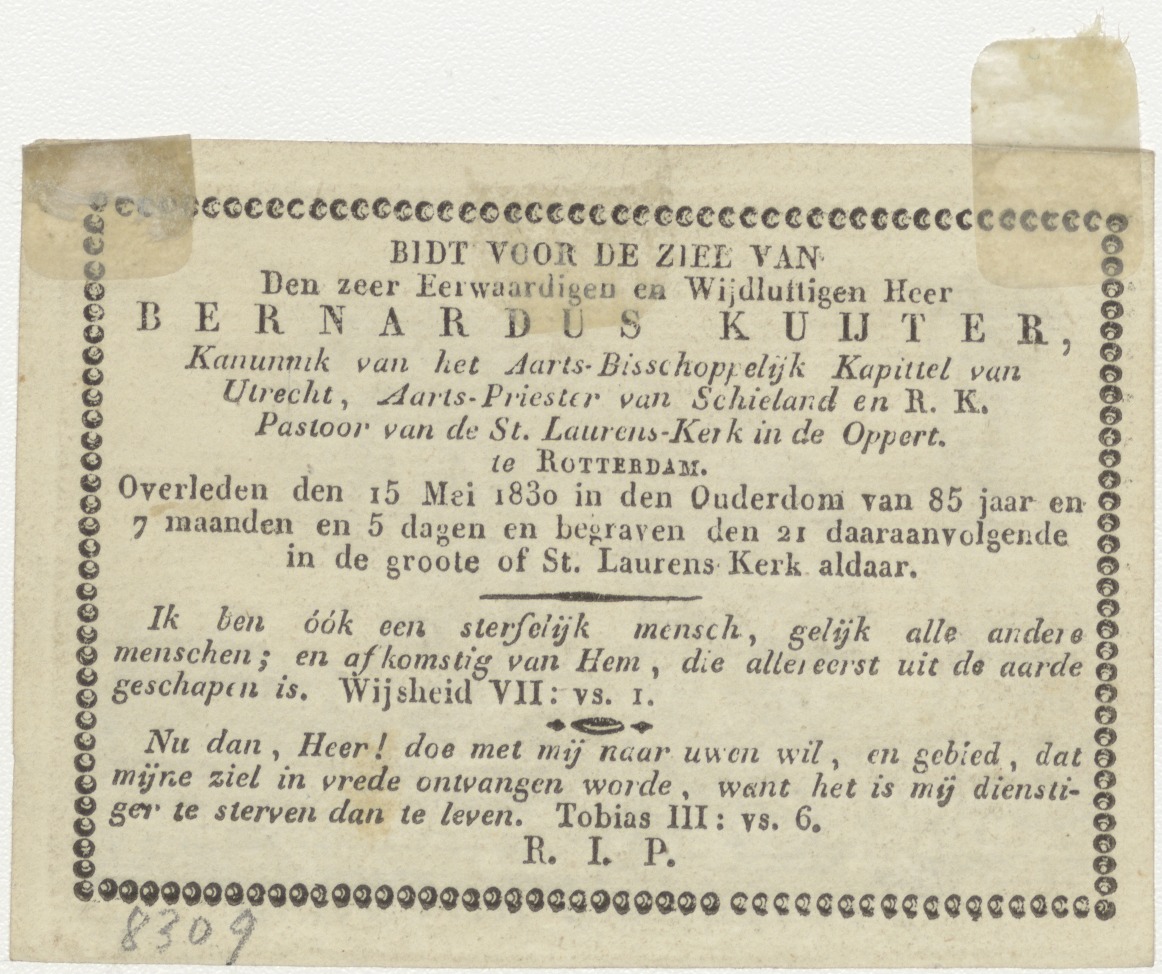 BIDT VOOR DE ZIEL VAN
Den zeer Eerwaardigen en Wijdluftigen Heer
BERNARDUS KUIJTER,
Kanunnik van het Aarts-Bisschoppelijk Kapittel van
Utrecht, Aarts-Priester van Schieland en R. K.
Pastoor van de St. Laurens-Kerk in de Oppert.
te ROTTERDAM.
Overleden den 15 Mei 1830 in den Ouderdom van 85 jaar en
7 maanden en 5 dagen en begraven den 21 daaraanvolgende
in de groote of St. Laurens Kerk aldaar.
Ik ben óók een sterfelijk mensch, gelijk alle andere
menschen; en afkomstig van Hem, die allereerst uit de aarde
geschapen is. Wijsheid VII: vs. 1.
Nu dan, Heer! doe met mij naar uwen wil, en gebied, dat
mijne ziel in vrede ontvangen worde, want het is mij diensti-
ger te sterven dan te leven. Tobias III: vs. 6.
R. I. P.
8309